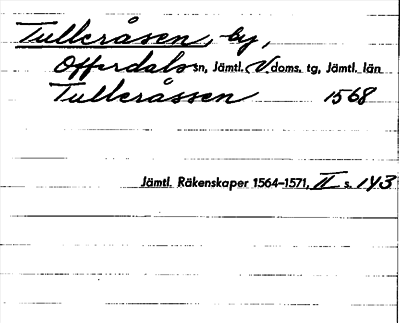 Tulleråsen, by,
Offerdals sn, Jämtl. V. doms. tg, Jämtl. län
Tulleråssen 1568
Jämtl. Räkenskaper 1564-1571, II s. 143